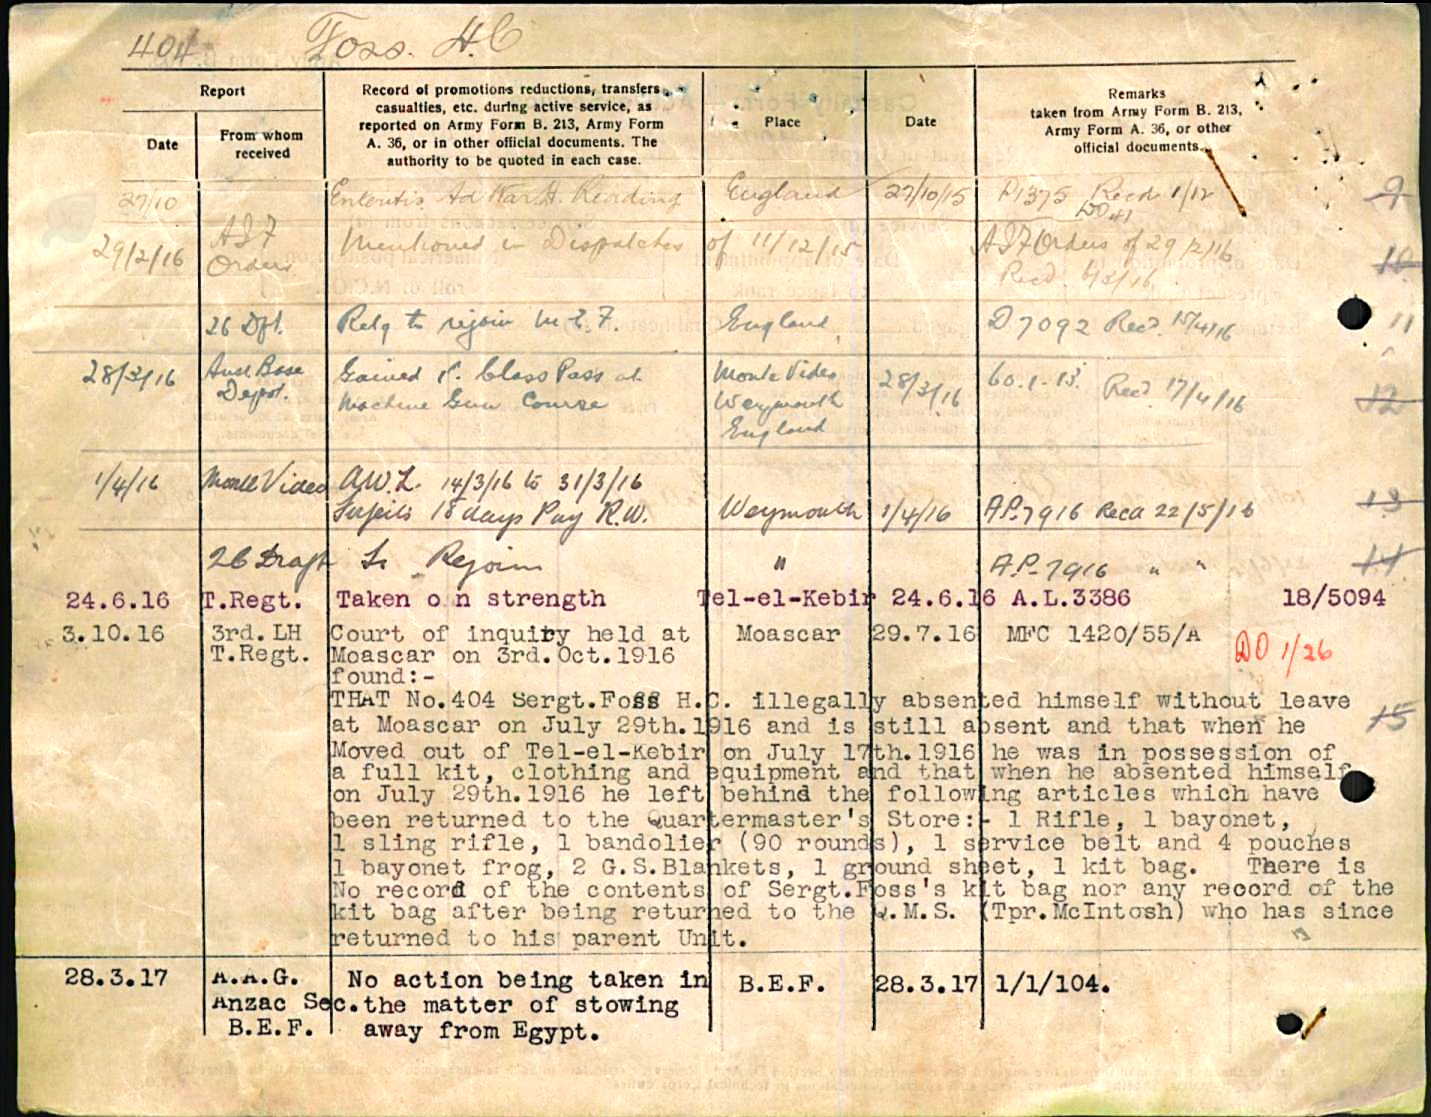 404 Foss. H.C
Report
Date
From whom
received
Record of promotions reductions, transfers,
casualties, etc. during active service, as
reported on Army Form B. 213, Army Form
A. 36, or in other official documents. The
authority to be quoted in each case.
Place
Date
Remarks
taken from Army Form B. 213,
Army Form A. 36, or other
official documents.
27/10 Enteritis Ad War H. Reading England 27/10/15 P1375 Recd 1/12 9
29/2/16 AIF Orders Mentioned in Dispatches of 11/12/15 AIF Orders of 29/2/16 10
Recd.
26 Dft. Retg to rejoin M.E.F. England D7092 Recd. 15/4/16 11
28/3/16 Aust Base Depot. Gained 1st Class Pass at Monte Video 28/3/16 60.1.13. Recd 17/4/16 12
Machine Gun Course Weymouth
England
1/4/16 Monte Video A.W.L. 14/3/16 to 31/3/16 13
Forfeits 18 days Pay R.W. Weymouth 1/4/16 A.P.7916 Recd 22/5/16
26 Draft To Rejoin " A.P.7916 " " 14
24.6.16 T.Regt. Taken o n strength Tel-el-Kebir 24.6.16 A.L.3386 18/5094
3.10.16 3rd.LH Court of inquity held at Moascar 29.7.16 MFC 1420/55/A
T.Regt. Moascar on 3rd.Oct.1916 DO 1/26
found:-
THAT No.404 Sergt.Foss H.C. illegally absented himself without leave
at Moascar on July 29th.1916 and is still absent and that when he 15
Moved out of Tel-el-Kebir on July 17th.1916 he was in possession of
a full kit, clothing and equipment and that when he absented himself
on July 29th.1916 he left behind the following articles which have
been returned to the Quartermaster's Store:- 1 Rifle, 1 bayonet,
1 sling rifle, 1 bandolier (90 rounds), 1 service belt and 4 pouches
1 bayonet frog, 2 G.S.Blankets, 1 ground sheet, 1 kit bag. There is
No record of the contents of Sergt.Foss's kit bag nor any record of the
kit bag after being returned to the Q.M.S. (Tpr.McIntosh) who has since
returned to his parent Unit.
28.3.17 A.A.G. No action being taken in B.E.F. 28.3.17 1/1/104.
Anzac Sec. the matter of stowing
B.E.F. away from Egypt.